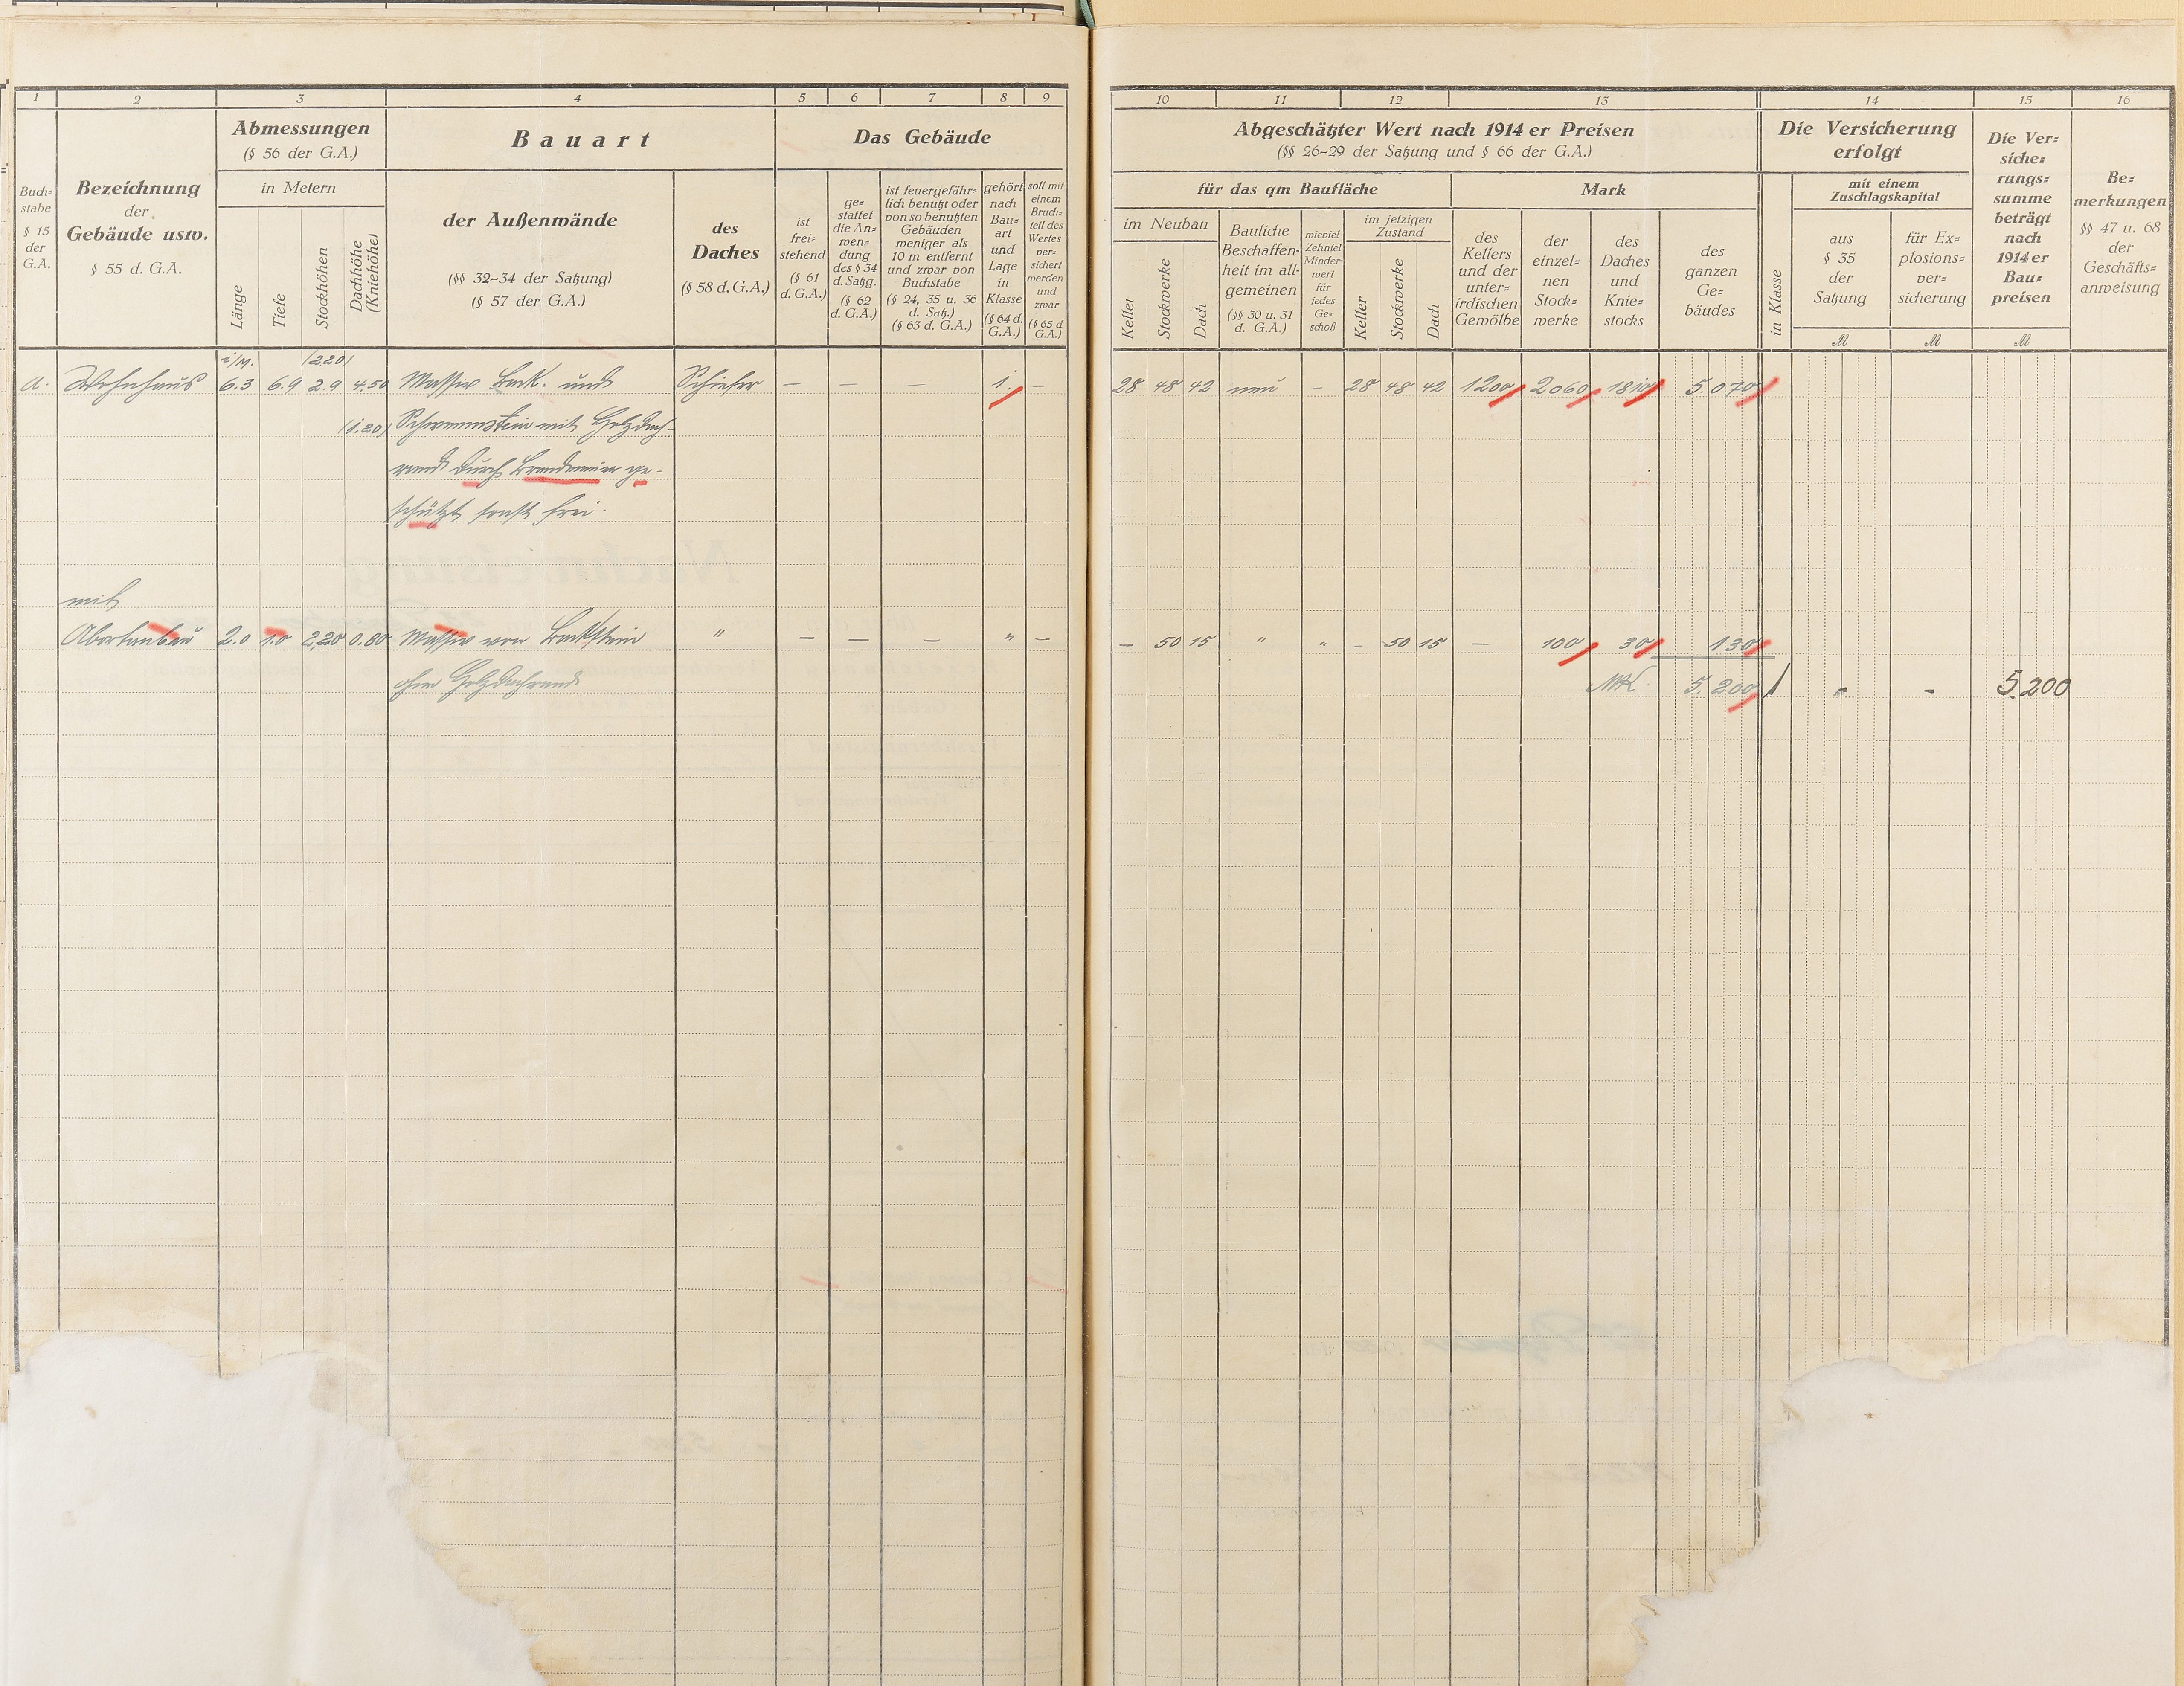 1 2 3 4 5 6 7 8 9
Abmessungen
(§ 56 der G.A.)
Bauart
Das Gebäude
Buch=
stabe
§ 15
der
G.A.
Bezeichnung
der
Gebäude usw.
§ 55 d. G.A.
in Metern
Länge
Tiefe
Stockhöhen
Dachhöhe
(Kniehöhe)
der Außenwände
(§§ 32–34 der Satzung)
(§ 57 der G.A.)
des
Daches
(§ 58 d. G.A.)
ist
frei=
stehend
(§ 61
d. G.A.)
ge=
stattet
die An=
wen=
dung
des § 34
d. Satzg.
(§ 62
d. G.A.)
ist feuergefähr=
lich benutzt oder
von so benutzten
Gebäuden
weniger als
10 m entfernt
und zwar von
Buchstabe
(§ 24, 35 u. 36
d. Satz.)
(§ 63 d. G.A.)
gehört
nach
Bau=
art
und
Lage
in
Klasse
(§ 64 d.
G.A.)
soll mit
einem
Bruch=
teil des
Wertes
ver=
sichert
werden
und
zwar
(§ 65 d
G.A.)
i/M. /2.20/
a. Wohnhaus 6.3 6.9 2.9 4.50 Massiv Back- und Schiefer — — — 1. —
(1.20) Schwemmstein mit Holzdach-
rand durch Brandmauer ge-
schützt sonst frei.
mit
Abortanbau 2.0 1.0 2,20 0.80 Massiv von Backstein " — — — " —
ohne Holzdachrand
10 11 12 13 14 15 16
Abgeschätzter Wert nach 1914 er Preisen
(§§ 26–29 der Satzung und § 66 der G.A.)
für das qm Baufläche
Mark
im Neubau
Keller
Stockwerke
Dach
Bauliche
Beschaffen=
heit im all=
gemeinen
(§§ 30 u. 31
d. G.A.)
wieviel
Zehntel
Minder=
wert
für
jedes
Ge=
schoß
im jetzigen
Zustand
Keller
Stockwerke
Dach
des
Kellers
und der
unter=
irdischen
Gewölbe
der
einzel=
nen
Stock=
werke
des
Daches
und
Knie=
stocks
des
ganzen
Ge=
bäudes
Die Versicherung
erfolgt
in Klasse
mit einem
Zuschlagskapital
aus
§ 35
der
Satzung
für Ex=
plosions=
ver=
sicherung
M M
Die Ver=
siche=
rungs=
summe
beträgt
nach
1914 er
Bau=
preisen
M
Be=
merkungen
§§ 47 u. 68
der
Geschäfts=
anweisung
28 48 42 neu – 28 48 42 1200 2060 1810 5.070
— 50 15 " " – 50 15 — 100 30 130
MK. 5.200 1 - - 5.200